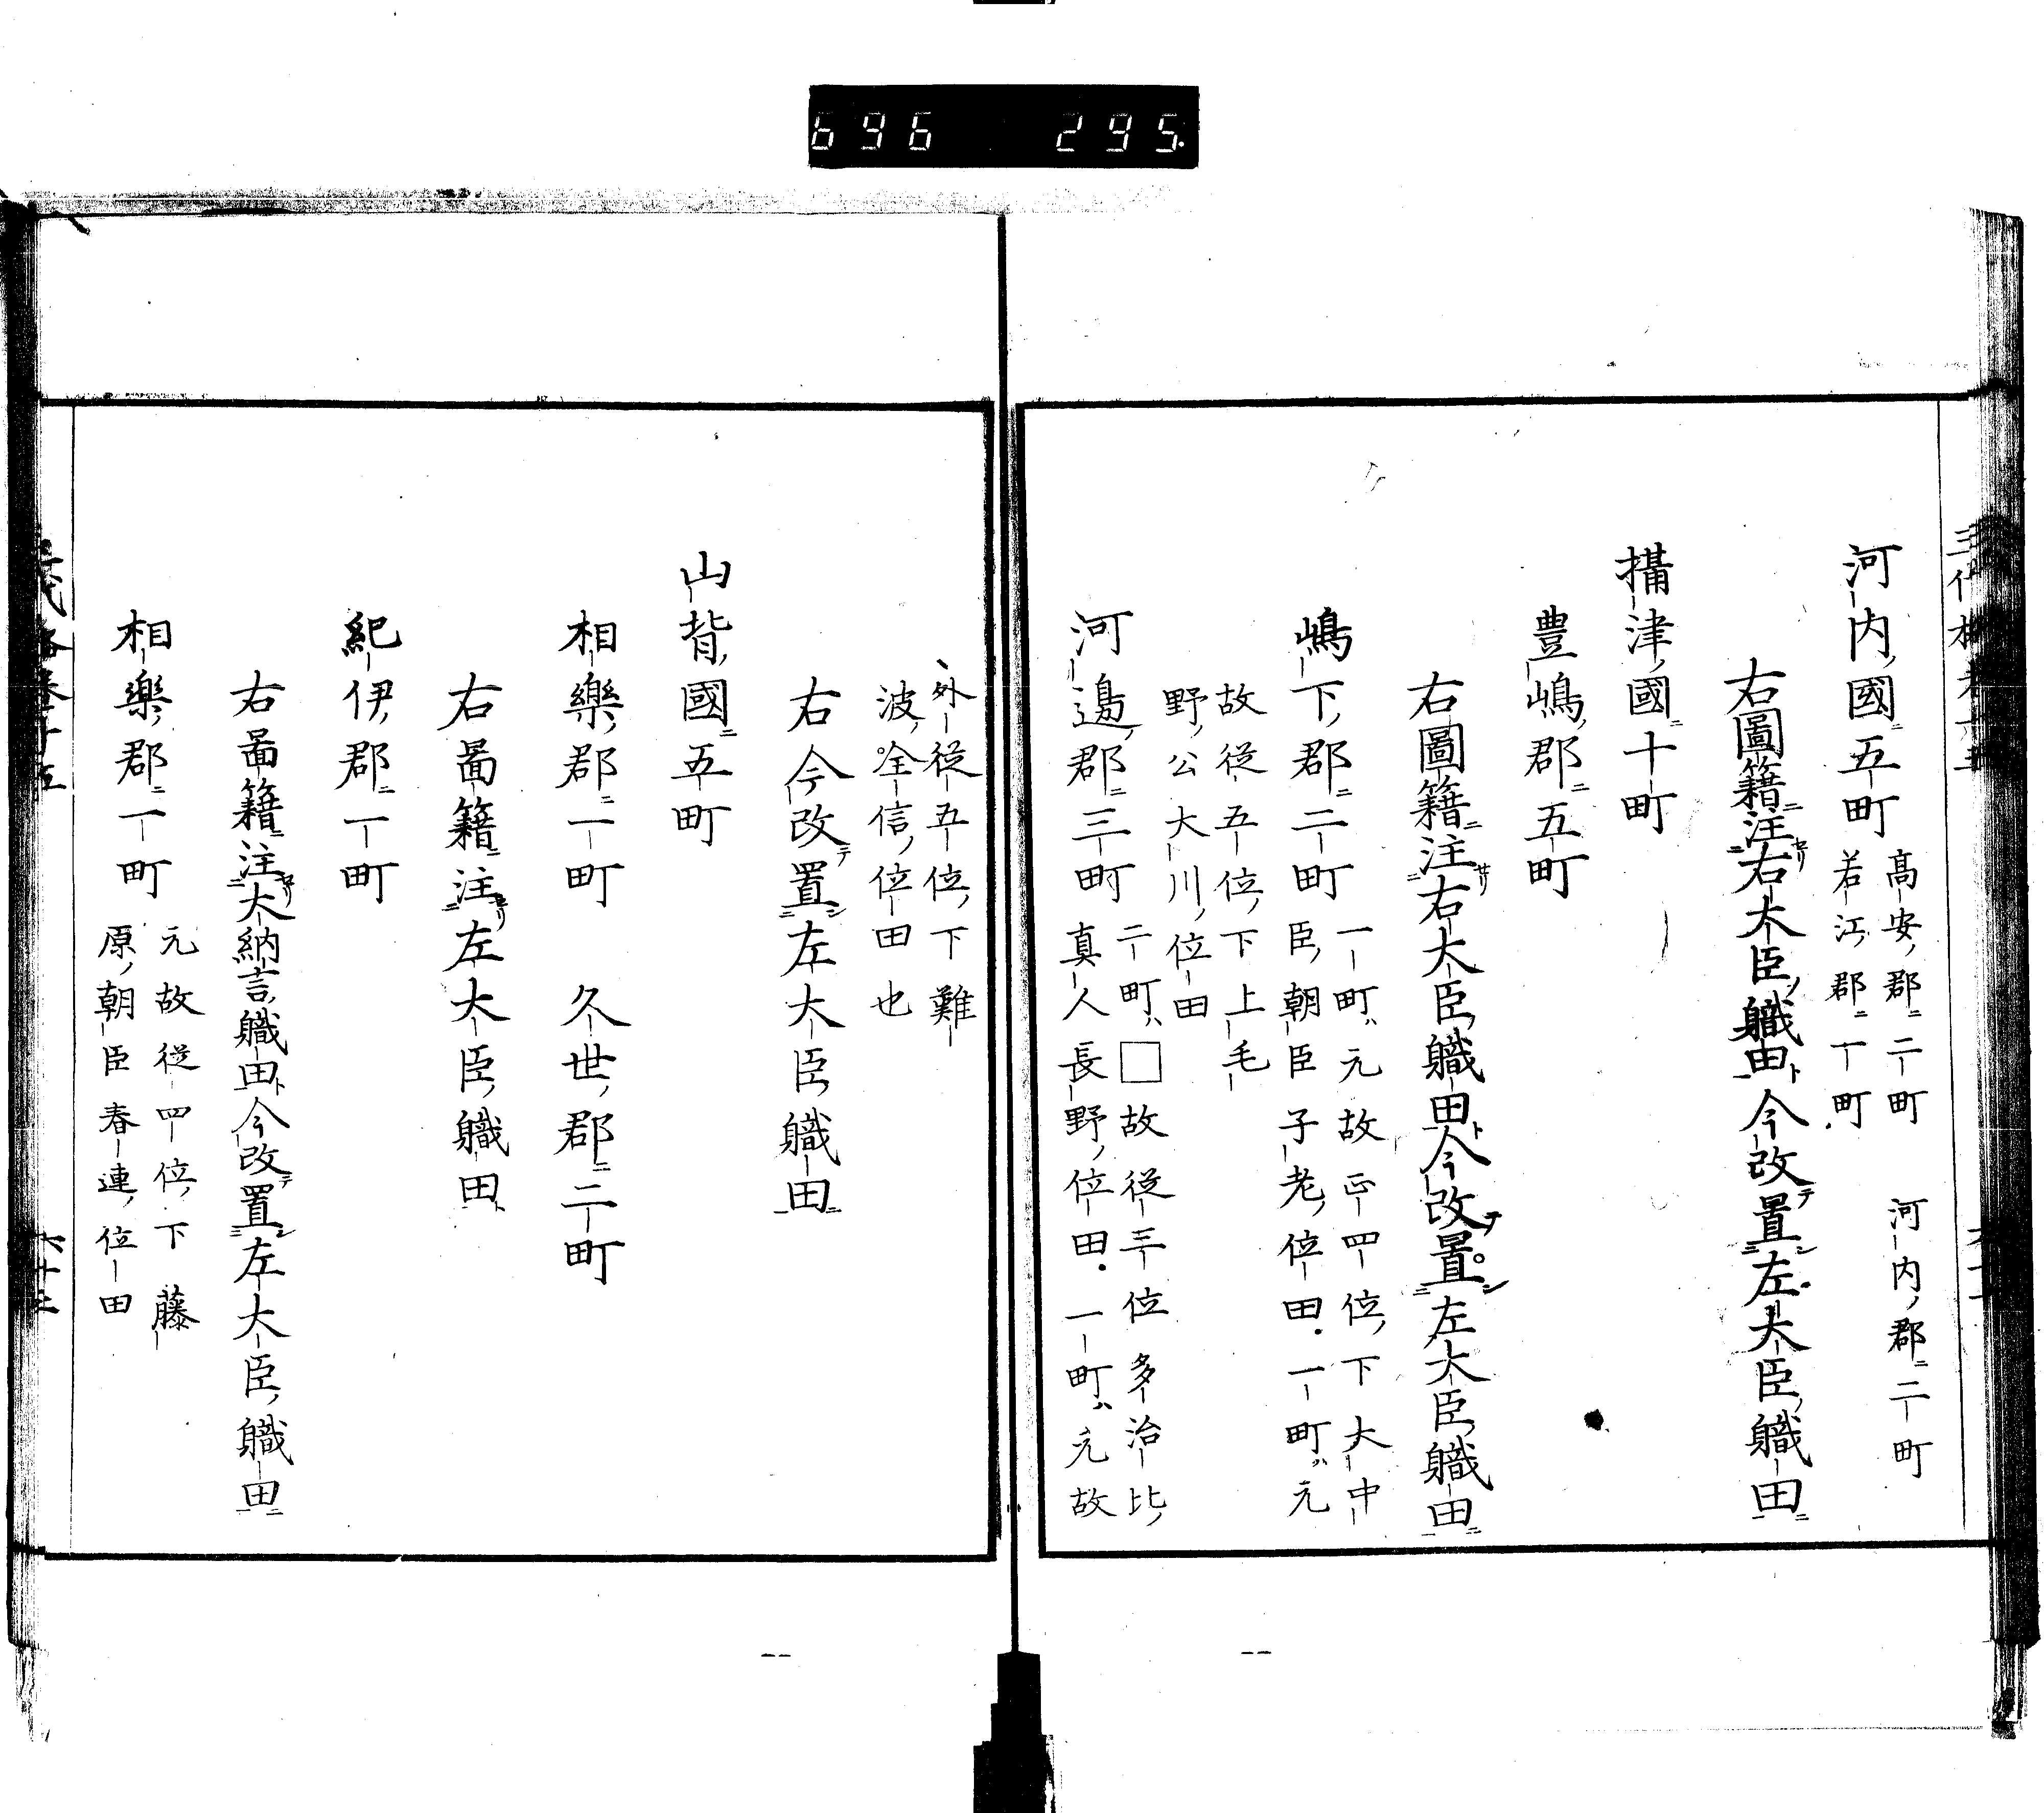 696 295
河内國五町
髙安郡二町 河内郡二町
若江郡一町
右圖籍注右大臣職田今改置左大臣職田
攝津國十町
豊嶋郡五町
右圖籍注右大臣職田今改置左大臣職田
嶋下郡二町
一町元故正四位下大中
臣朝臣子老位田一町元
故従五位下上毛
野公大川位田
河邊郡三町
二町□故従三位多治比
真人長野位田一町元故
外従五位下難
波全信位田也
右今改置左大臣職田
山背國五町
相樂郡一町 久世郡二町
右啚籍注左大臣職田
紀伊郡一町
右啚籍注大納言職田今改置左大臣職田
相樂郡一町
元故従四位下藤
原朝臣春連位田